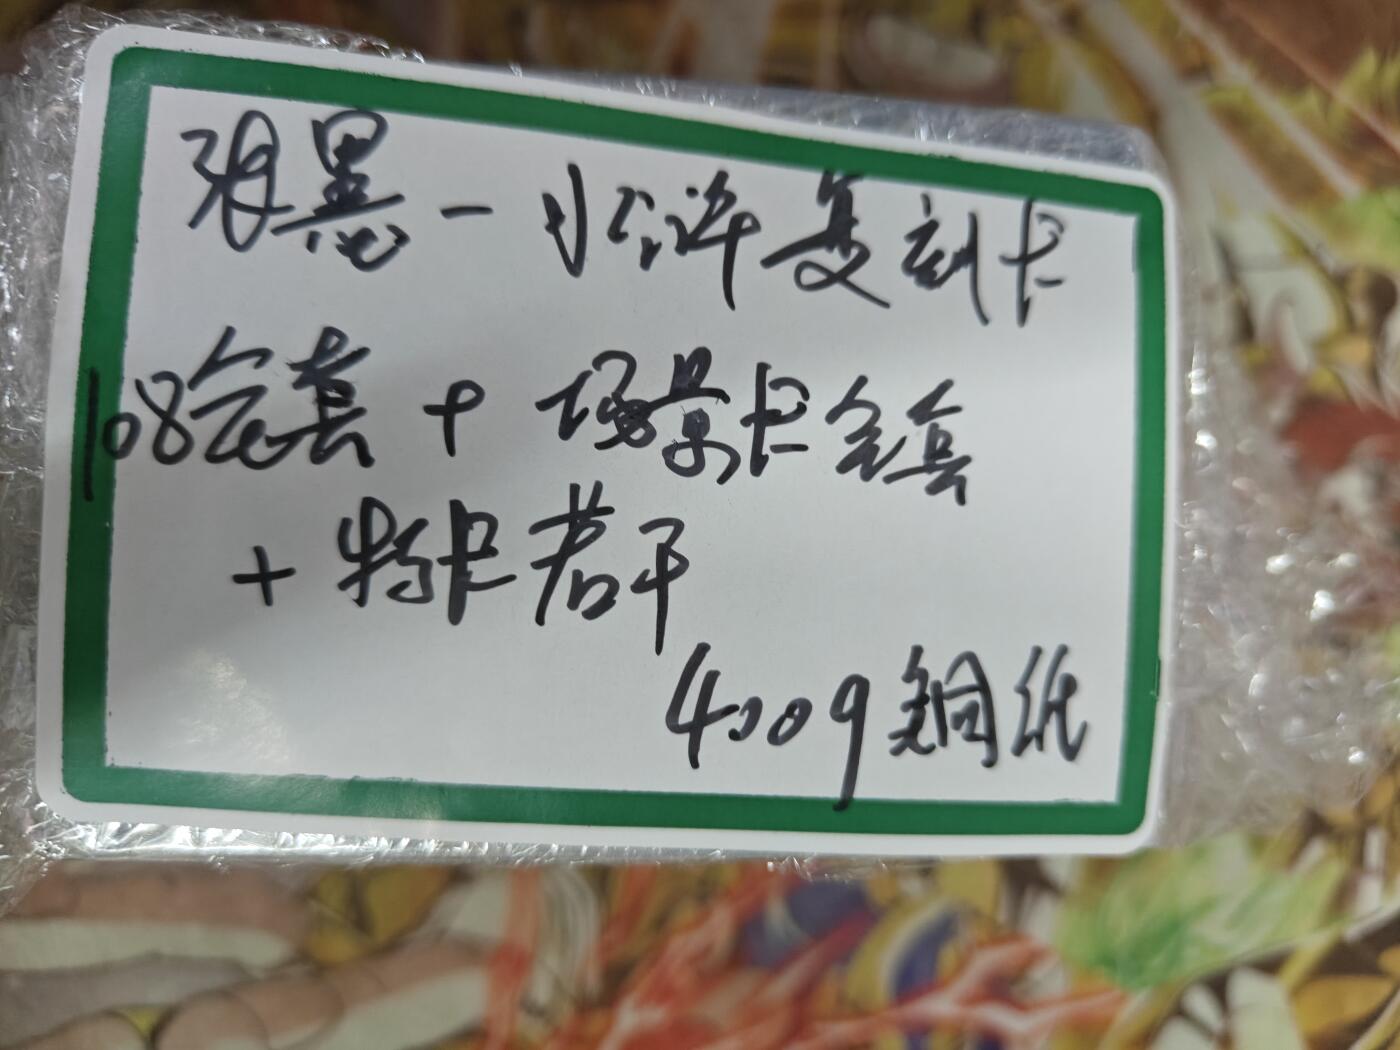 墨－水浒复刻卡
108全套＋场景卡全套
＋特卡若干
400g铜纸